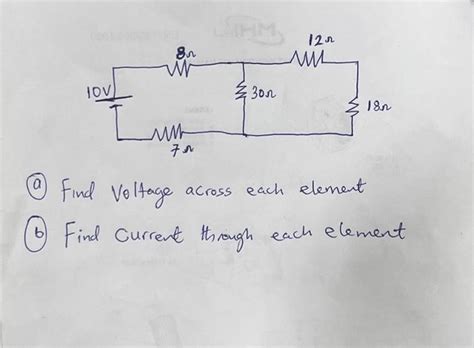 12Ω
8Ω
10V
30Ω
18Ω
7Ω
(a) Find Voltage across each element
(b) Find Current through each element